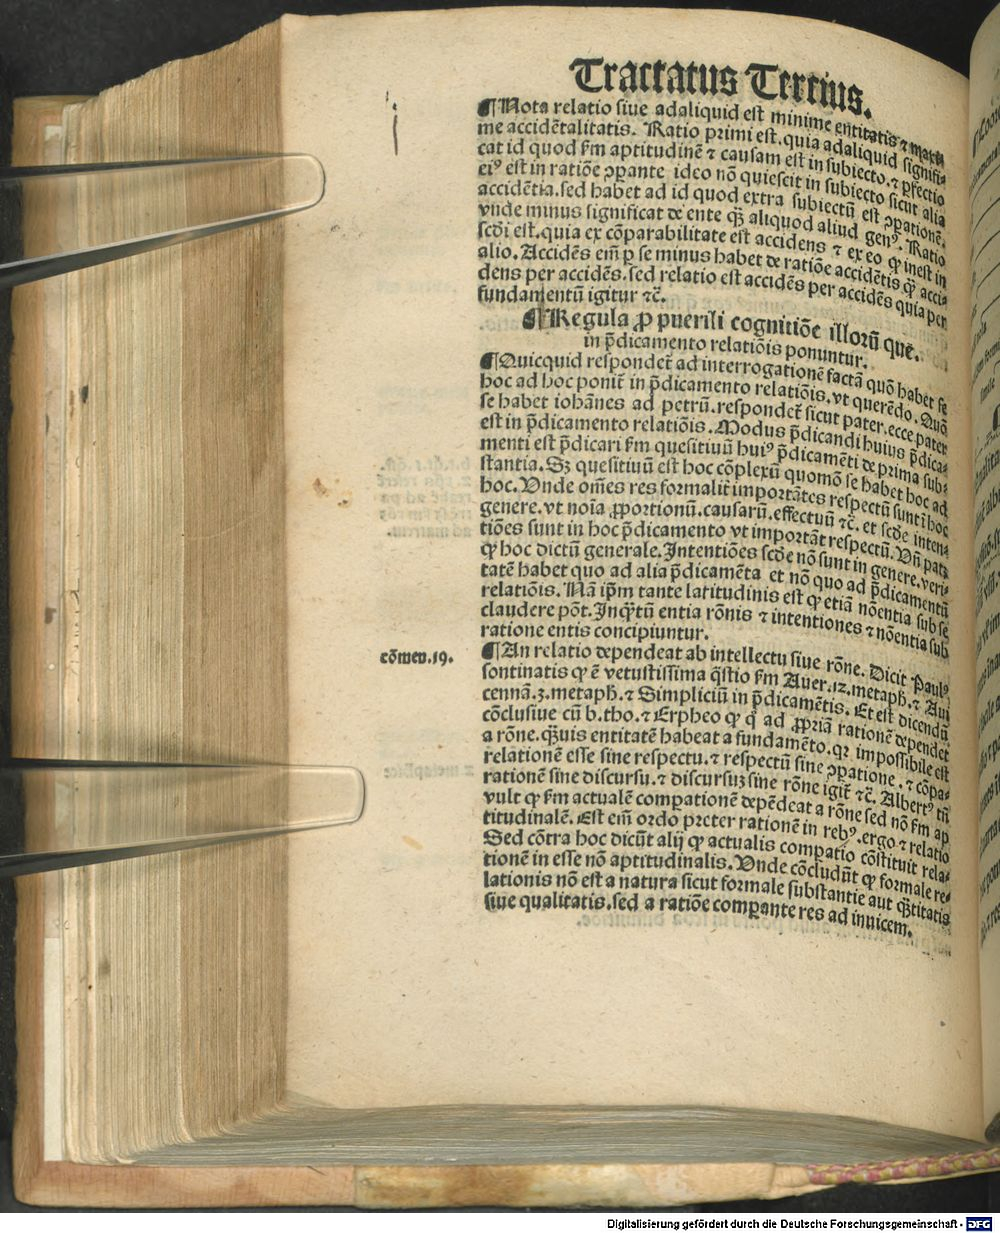 Tractatus Tertius.
¶Nota relatio siue adaliquid est minime entitatis ⁊ maxi
me accidẽtalitatis. Ratio primi est. quia adaliquid signifi-
cat id quod ẜm aptitudinẽ ⁊ causam est in subiecto. ⁊ ꝑfectio
eiꝰ est in ratiõe ꝯparante ideo nõ quiescit in subiecto sicut alia
accidẽtia. sed habet ad id quod extra subiectũ est ꝯparationẽ.
vnde minus significat de ente qȝ̃ aliquod aliud genꝰ. Ratio
scđi est. quia ex cõparabilitate est accidens ⁊ ex eo ꝙ inest in
alio. Accidẽs eiñi ꝑ se minus habet de ratiõe accidẽtis qȝ̃ acci-
dens per accidẽs. sed relatio est accidẽs per accidẽs quia per
fundamentũ igitur ⁊c̃.
¶Regula ꝓ puerili cognitiõe illorũ que.
in p̃dicamento relatiõis ponuntur.
¶Quicquid respondet̃ ad interrogationẽ factã quõ habet se
hoc ad hoc ponit̃ in p̃dicamento relatiõis. vt querẽdo. Quõ
se habet iohãnes ad petrũ. respondet̃ sicut pater. ecce pater
est in p̃dicamento relatiõis. Modus p̃dicandi huius p̃dica-
menti est p̃dicari ẜm quesitiuũ huiꝰ p̃dicamẽti de prima sub-
stantia. Sȝ quesitiuũ est hoc cõplexũ quomõ se habet hoc ad
hoc. Vnde om̃es res formalit̃ importãtes respectũ sunt ĩ hoc
genere. vt noĩa ꝓportionũ. causarũ. effectuũ ⁊c̃. et scđe inten-
tiões sunt in hoc p̃dicamento vt importãt respectũ. Vñ patꝫ
ꝙ hoc dictũ generale. Intentiões scđe nõ sunt in genere. veri-
tatẽ habet quo ad alia p̃dicamẽta et nõ quo ad p̃dicamentũ
relatiõis. Nã ip̃m tante latitudinis est ꝙ etiã nõentia sub se
claudere põt. Inqȝ̃tũ entia rõnis ⁊ intentiones ⁊ nõentia sub
ratione entis concipiuntur.
cõmen. 19.
¶An relatio dependeat ab intellectu siue rõne. Dicit Paulꝰ
sontinatis ꝙ ẽ vetustissima q̃stio ẜm Auer. 12. metaph̃. ⁊ Aui
cennã. 3. metaph̃. ⁊ Simpliciũ in p̃dicamẽtis. Et est dicendũ
cõclusiue cũ b. tho. ⁊ Erpheo ꝙ q̃ ad ꝓpriã rationẽ dependet
a rõne. qȝ̃uis entitatẽ habeat a fundamẽto. qꝛ impossibile est
relationẽ esse sine respectu. ⁊ respectũ sine ꝯparatione. ⁊ cõpa-
rationẽ sine discursu. ⁊ discursuȝ sine rõne igit̃ ⁊c̃. Albertꝰ tñ
vult ꝙ ẜm actualẽ comparationẽ depẽdeat a rõne sed nõ ẜm ap
titudinalẽ. Est eiñi ordo preter rationẽ in rebꝰ. ergo ⁊ relatio
Sed cõtra hoc dicũt alij ꝙ actualis comparatio cõstituit rela-
tionẽ in esse nõ aptitudinalis. Vnde cõcludũt ꝙ formale re-
lationis nõ est a natura sicut formale substantie aut qȝ̃titatis
siue qualitatis. sed a ratiõe comparante res ad inuicem.
Digitalisierung gefördert durch die Deutsche Forschungsgemeinschaft - DFG